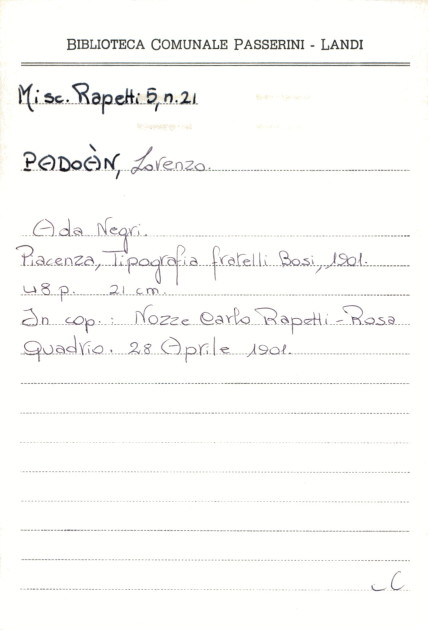 BIBLIOTECA COMUNALE PASSERINI - LANDI
Misc. Rapetti 5, n. 21
PADOÀN, Lorenzo.
Ada Negri.
Piacenza, Tipografia fratelli Bosi, 1901.
48 p. 21 cm.
In cop.: Nozze Carlo Rapetti - Rosa
Quadrio. 28 Aprile 1901.